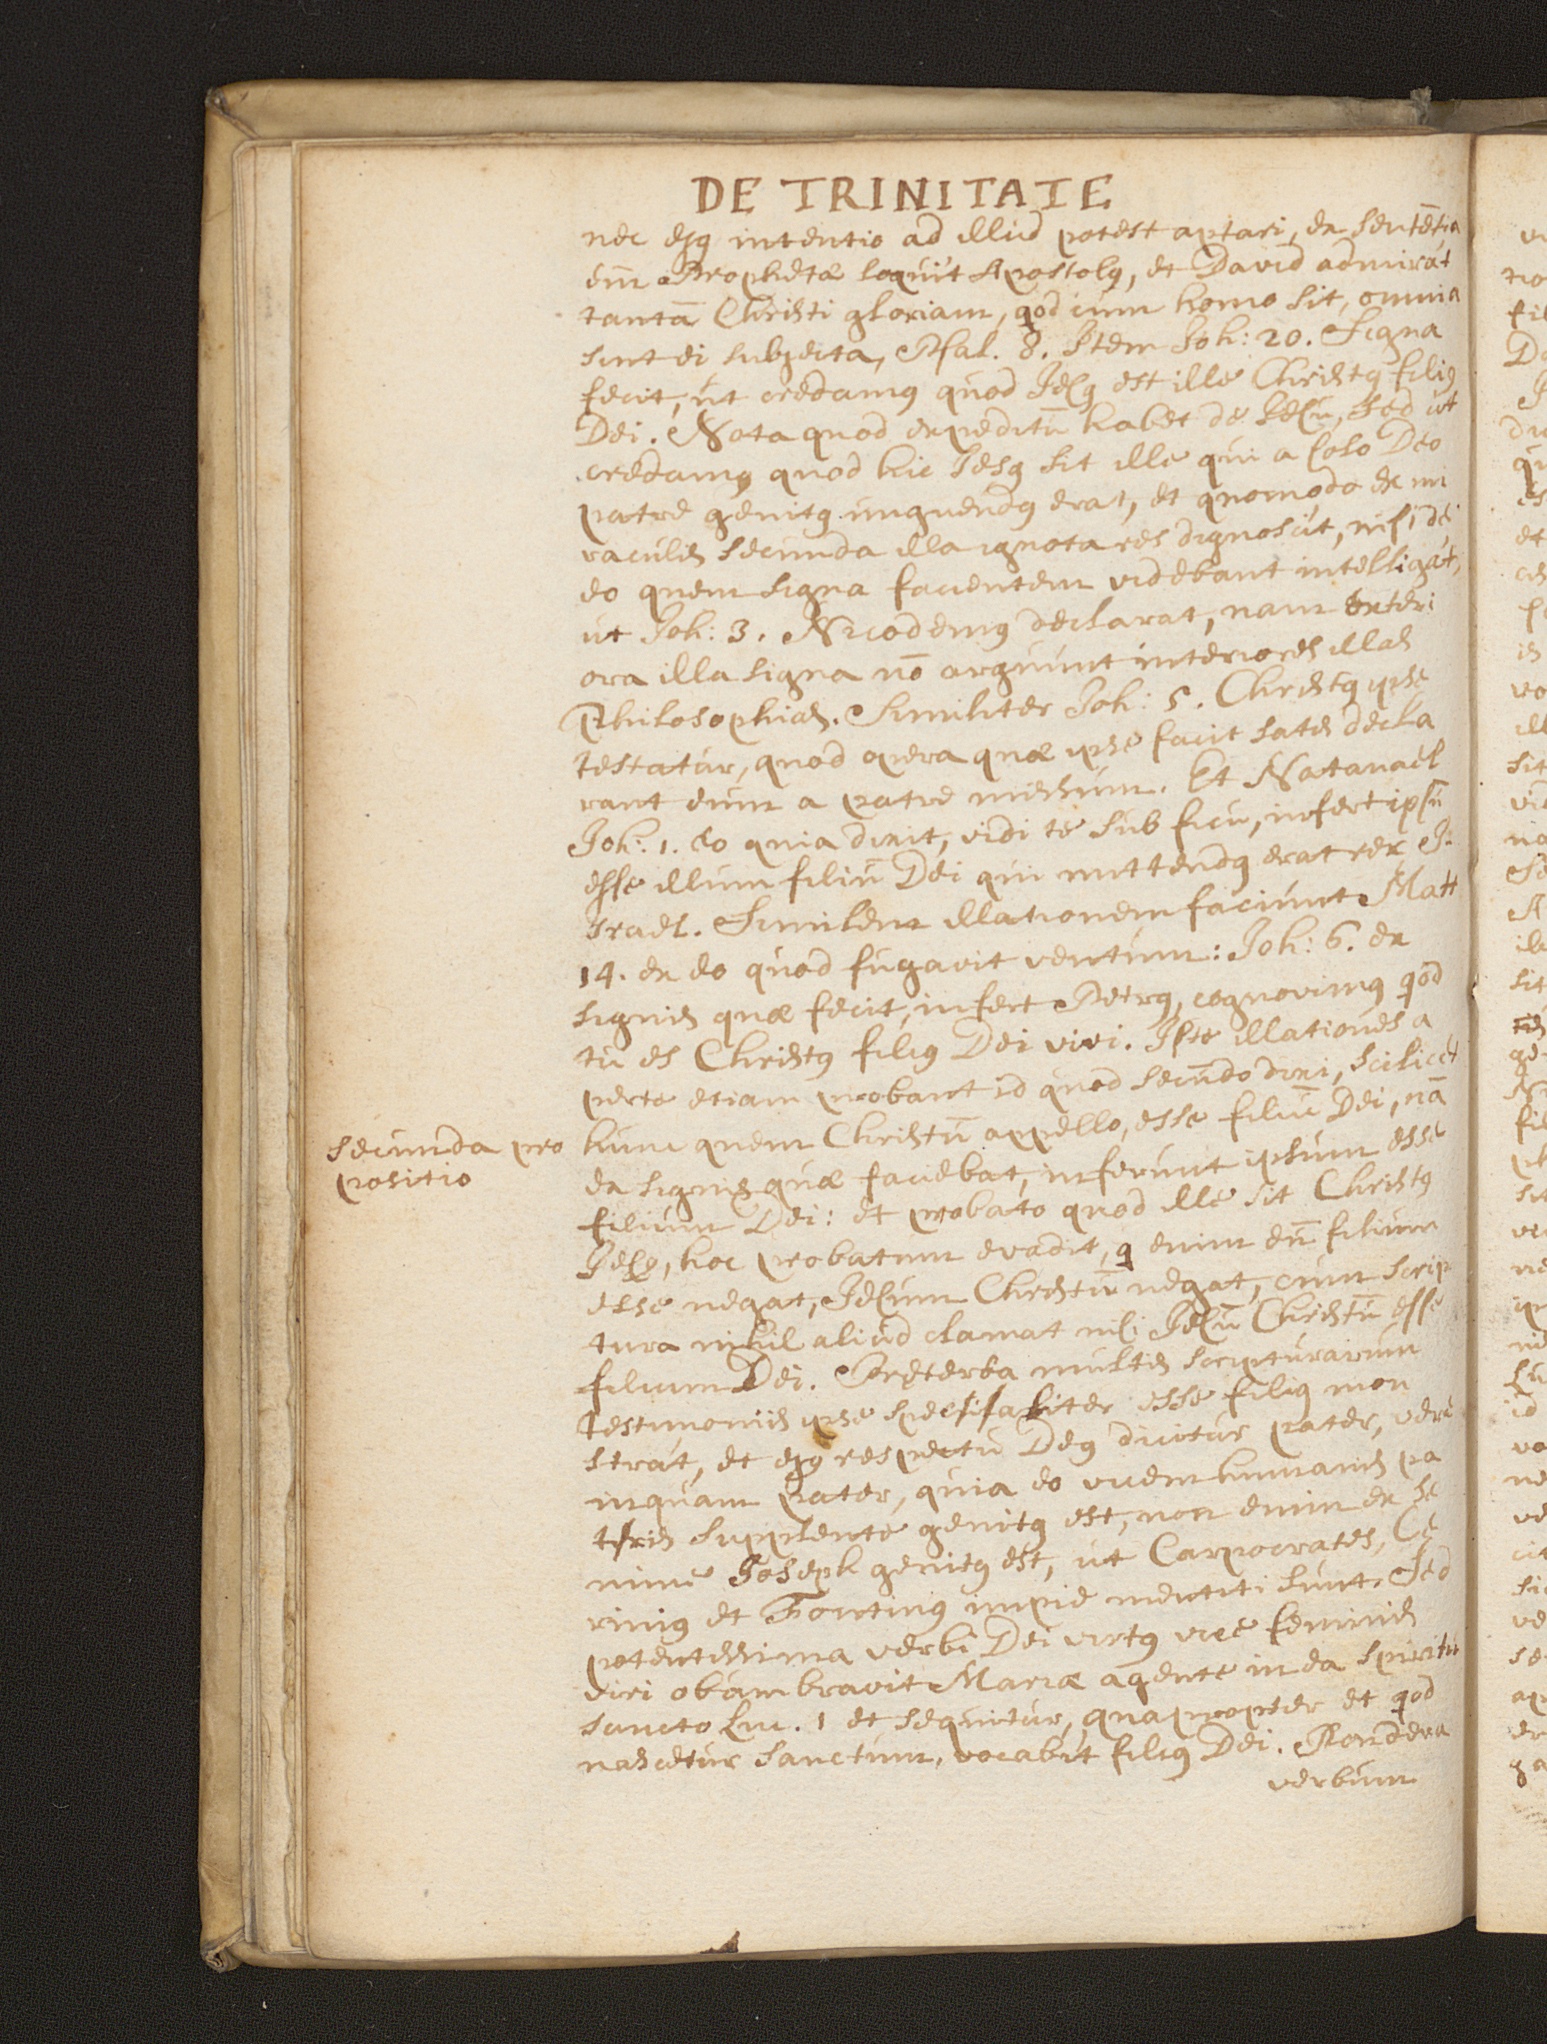 DE TRINITATE
nec ejꝰ intentio ad illud potest aptari, ex sentētia
em̄ Prophetæ loquit̄ Apostolꝰ, et David admirat̄
tantā Christi gloriam, qōd cum homo sit, omnia
sint ei subjecta, Psal. 8. Item Joh: 20. Signa
fecit, ut credamꝰ quod Jesꝰ est ille Christꝰ filiꝰ
Dei. Nota quod expeditū habet de Jesu, sed ut
credamꝰ quod hic Jesꝰ sit ille qui a solo Deo
patre genitꝰ unguendꝰ erat, et quomodo ex mi
raculis secunda illa ignota res dignoscit̄, nisi de
eo quem signa facientem videbant intelligat̄,
ut Joh: 3. Nicodemꝰ declarat, nam exteri
ora illa signa nō arguunt interiores illas
Philosophias. Similiter Joh: 5. Christꝰ ipse
testatur, quod opera quæ ipse facit satis decla
rant eum a patre missum. Et Natanaël
Joh: 1. eo quia dixit, vidi te sub ficu, infert ipsū
esse illum filiū Dei qui mittendꝰ erat rex I:
srael. Similem illationem faciunt Matt
14. ex eo quod fugavit ventum: Joh: 6. ex
signis quæ fecit, infert Petrꝰ, cognovimꝰ qōd
tu es Christꝰ filiꝰ Dei vivi. Iste illationes a
perte etiam probant id quod secūdo dixi, scilicet
secunda pro
positio
hunc quem Christū appello, esse filiū Dei, nā
ex signis quæ faciebat, inferunt ipsum esse
filium Dei: et probato quod ille sit Christꝰ
Jesꝰ, hoc probatum evadit, q enim eū filium
esse negat, Jesum Christū negat, cum scrip
tura nihil aliud clamat nisi Jesū Christū esse
filium Dei. Præterea multis scripturarum
testimoniis ipse specialiter esse filiꝰ mon
strat̄, et ejꝰ respectu Deꝰ dicitur pater, vere
inquam pater, quia eo vicem humanis pa
tris supplente genitꝰ est, non enim ex se
mine Joseph genitꝰ est, ut Carpocrates, Ce
rinꝰ et Fontinꝰ impie mentiti sunt. Sed
potentissima verbi Dei virtꝰ vice seminis
viri obumbravit Mariæ agente in ea spiritu
sancto Luc. 1 et sequitur, quapropter et qōd
nascetur sanctum, vocabit̄ filiꝰ Dei. Pondera
verbum